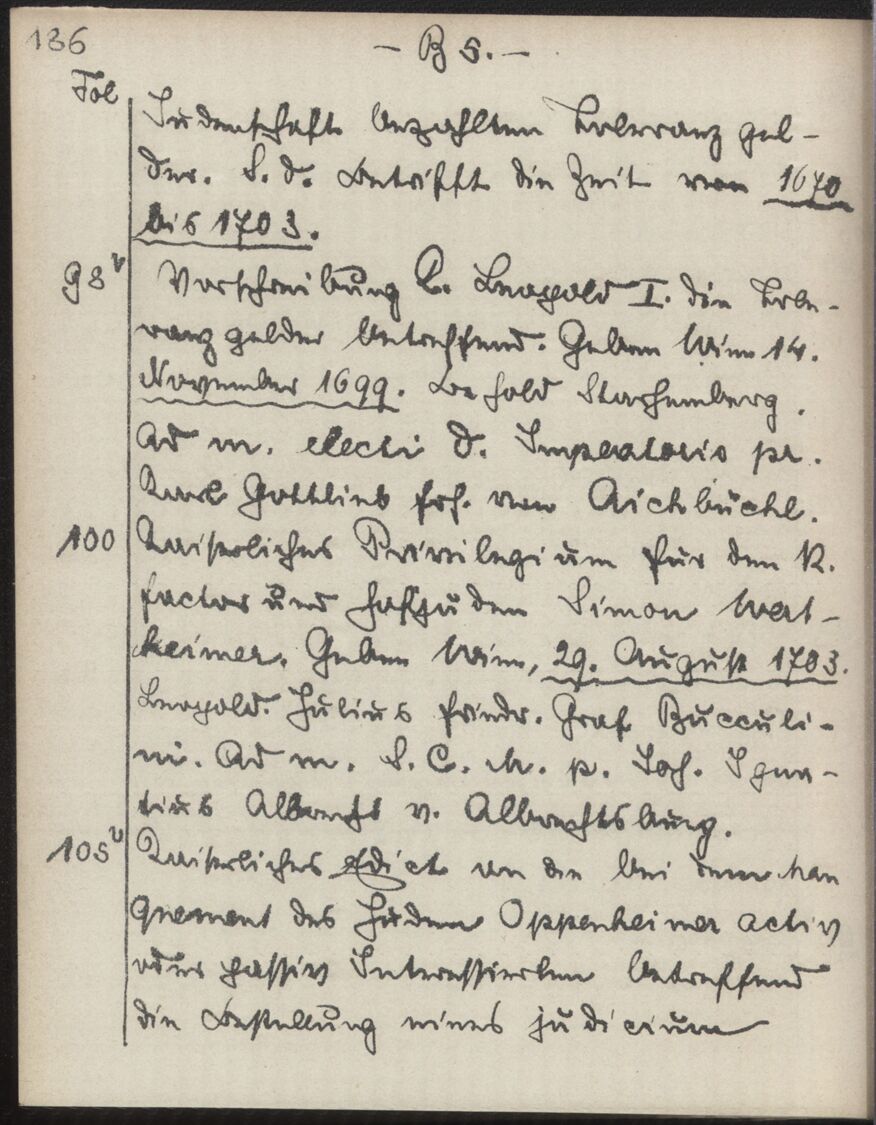 136
- B 5. -
Fol
Judenschaft bezahlten Toleranzgel-
der. S. d. Betrifft die Zeit von 1670
bis 1703.
98v Verschreibung K. Leopold I. die Tole-
ranzgelder betreffend. Geben Wien 14.
November 1699. Leopold Starhemberg.
Ad m. electi d. Imperatoris pr.
Karl Gottlieb Frh. von Aichbüchl.
100 Kaiserliches Privilegium für den K.
factor und Hofjuden Simon Wert-
heimer. Geben Wien, 29. August 1703.
Leopold. Julius Friedr. Graf Bucculi-
ni. Ad m. S. C. M. p. Joh. Igna-
tius Albrecht v. Albrechtsburg.
105v Kaiserliches Edict an die bei dem Man
quement des Juden Oppenheimer activ
oder passiv Interessierten betreffend
die Bestellung eines judicium